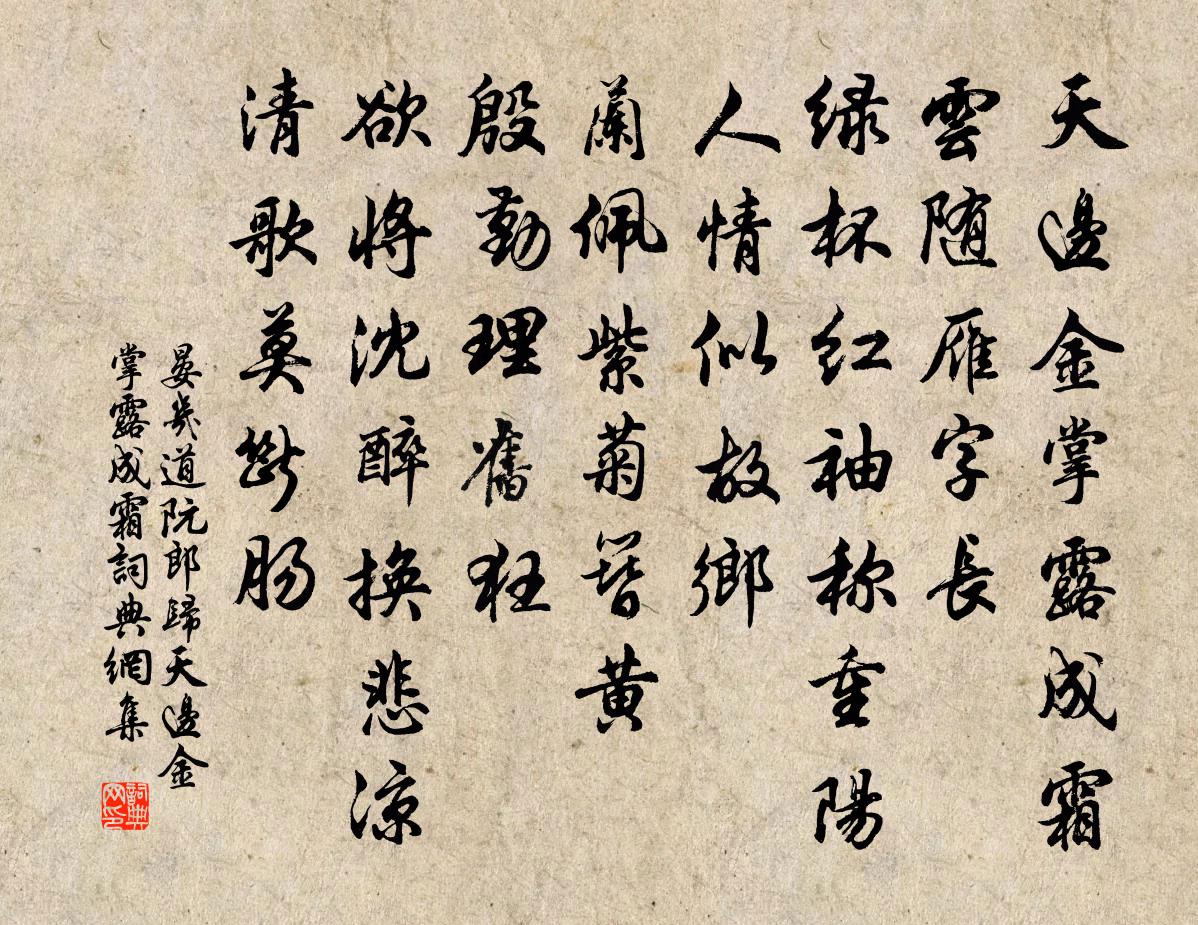 天邊金掌露成霜
雲随雁字長
緑杯红袖称重陽
人情似故鄉
蘭佩紫菊簪黄
殷勤理舊狂
欲將沈醉換悲涼
清歌莫斷肠
晏幾道阮郎歸天邊金
掌露成霜詞典網集
詞典
网印